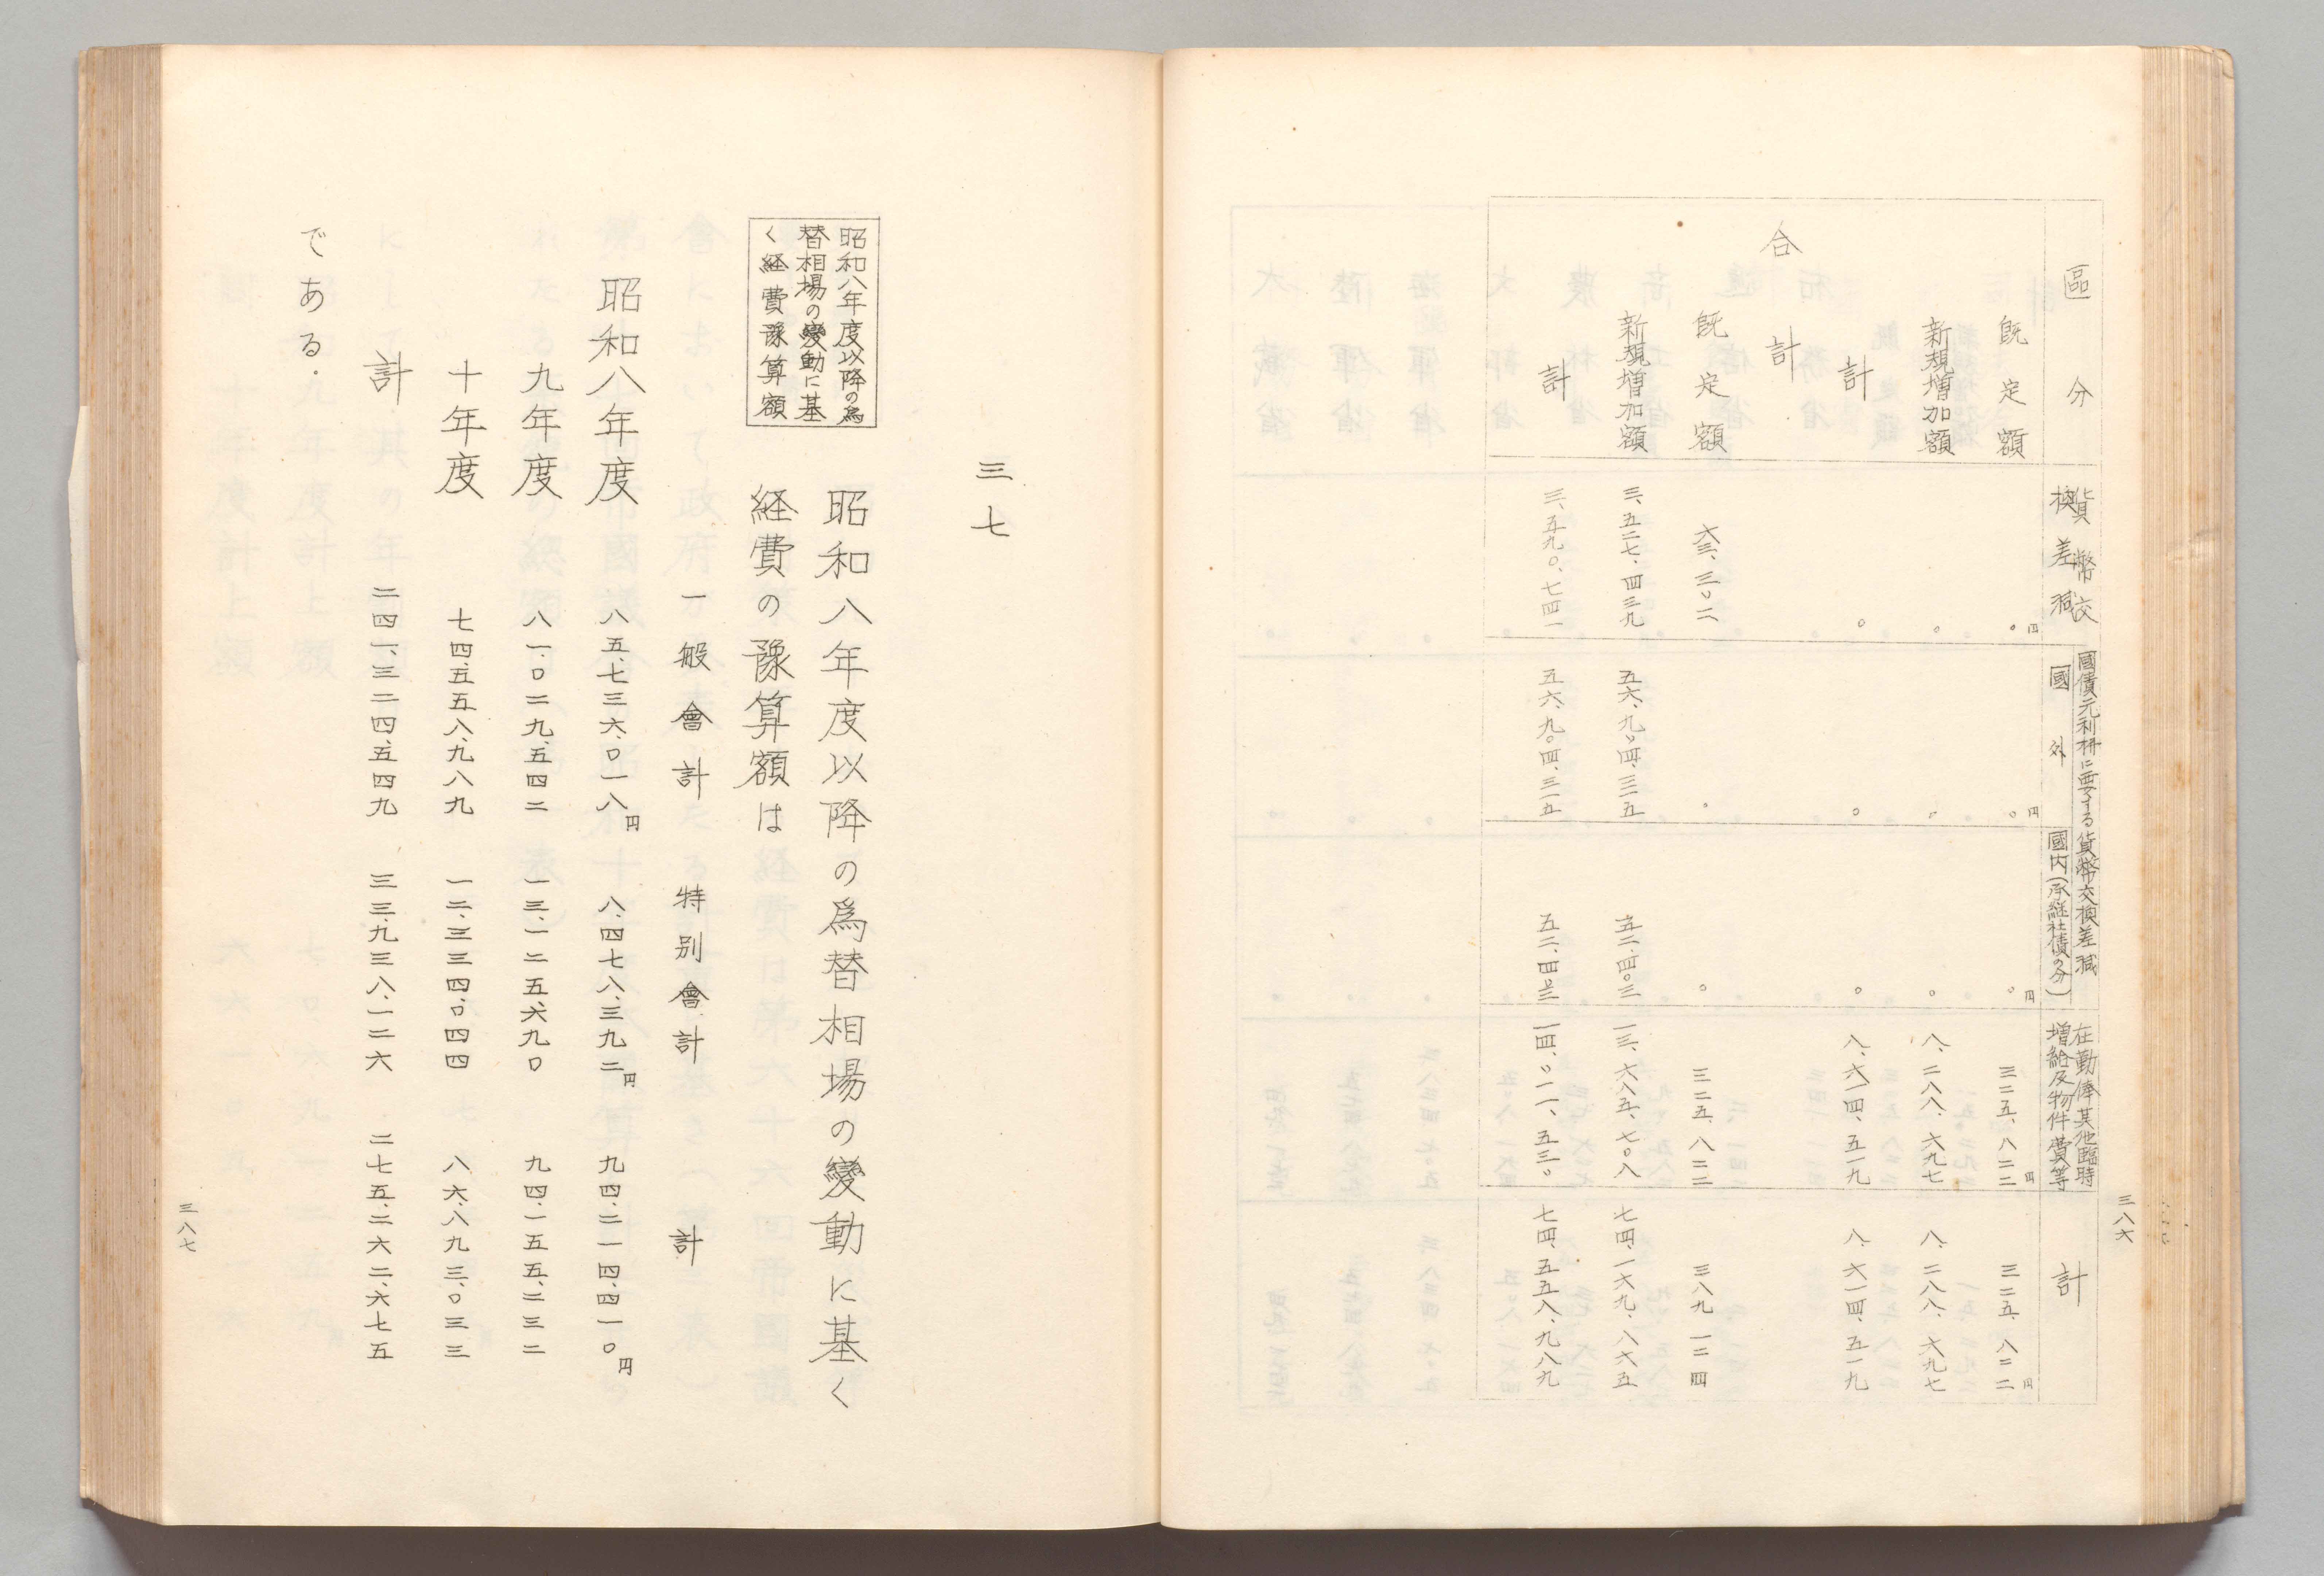 三八六
區分 貨幣交換差減 國債元利拂に要する貨幣交換差減 國外 國内(承継社債の分) 在勤俸其他臨時増給及物件費等 計
既定額 〇円 〇円 〇円 三二五、八二二円 三二五、八二二円
新規増加額 〇 〇 〇 八、二八八、六九七 八、二八八、六九七
計 〇 〇 〇 八、六一四、五一九 八、六一四、五一九
合計
既定額 六三、三〇二 〇 〇 三二五、八二二 三八九一二四
新規増加額 三、五二七、四三九 五六、九〇四、三一五 五二、四〇三 一三、六八五、七〇八 七四、一六九、八六五
計 三、五九〇、七四一 五六、九〇四、三一五 五二、四〇三 一四、〇一一、五三〇 七四、五五八、九八九
三七
昭和八年度以降の為
替相場の變動に基
く経費豫算額
昭和八年度以降の爲替相場の變動に基く
経費の豫算額は
一般會計 特别會計 計
昭和八年度 八五、七三六、〇一八円 八、四七八、三九二円 九四、二一四、四一〇円
九年度 八一、〇二九、五四二 一三、一二五、六九〇 九四、一五五、二三二
十年度 七四、五五八、九八九 一二、三三四、〇四四 八六、八九三、〇三三
計 二四一、三二四、五四九 三三、九三八、一二六 二七五、二六二、六七五
である.
三八七